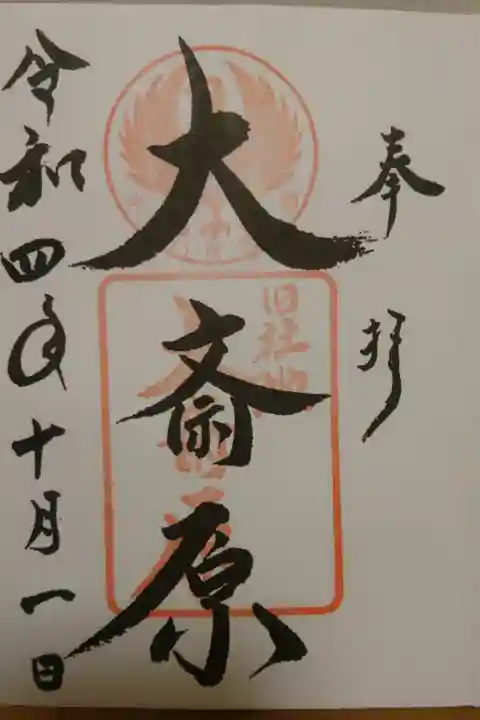 奉拝
旧社地
大斎原
令和四年十月一日